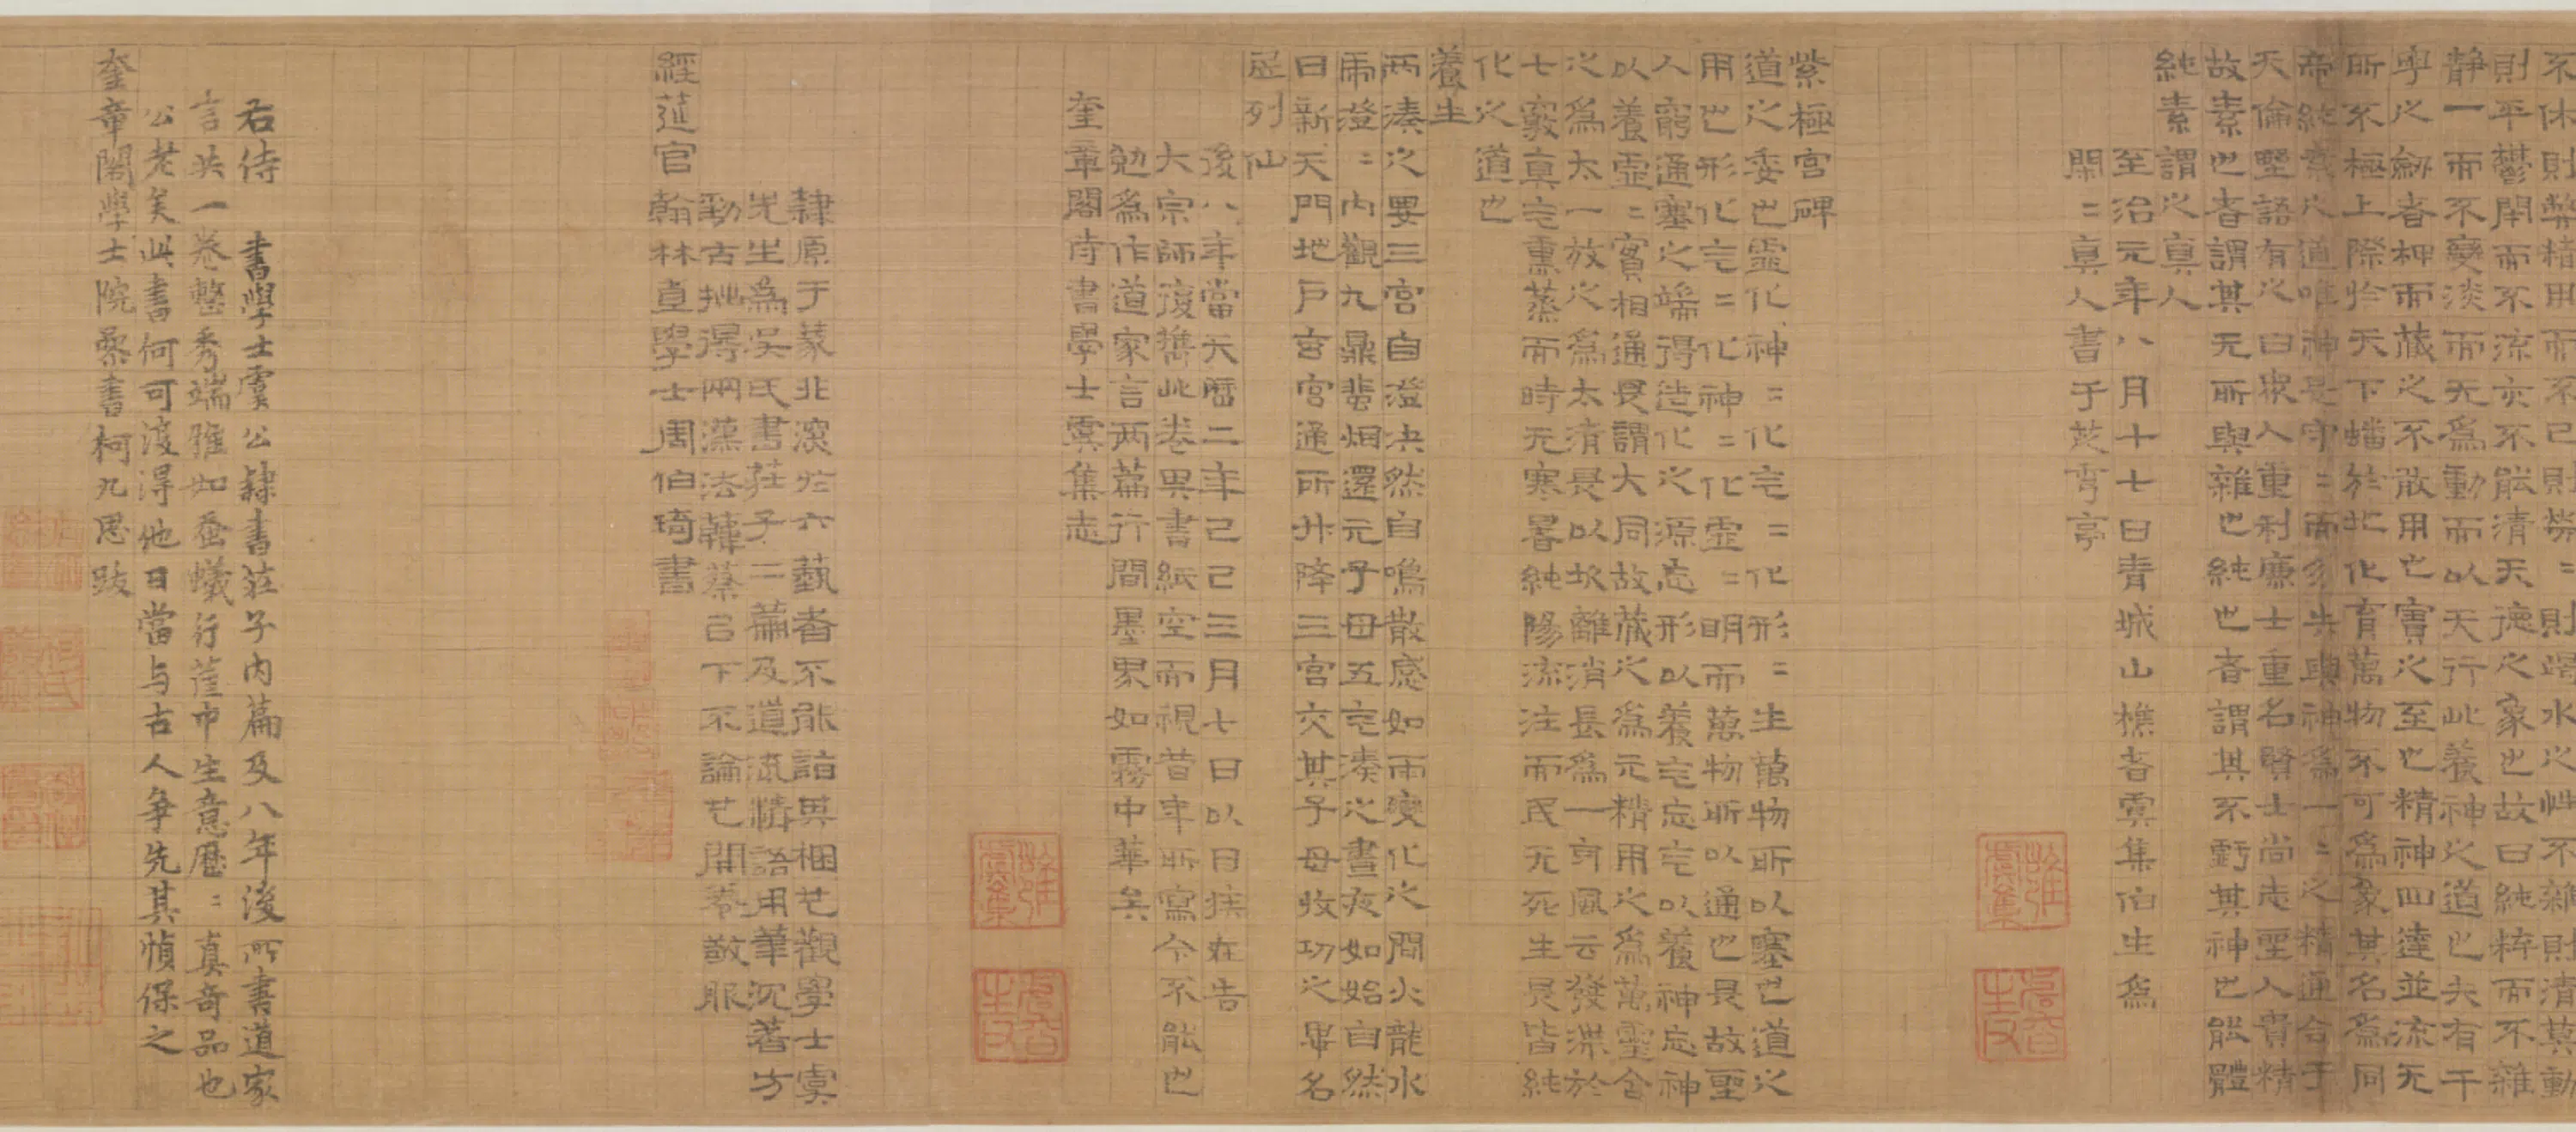 不休則弊精用而不已則勞二則竭水之性不雜則清莫動
則平鬱閉而不流亦不能清天德之象也故曰純粹而不雜
静一而不變淡而无為動而以天行此養神之道也夫有干
之劒者柙而藏之不敢用也寶之至也精神四達並流无
所不極上際於天下蟠於地化育萬物不可為象其名為同
帝純素之道唯神是守二而勿失與神為一二之精通合于
天倫野語有之曰衆人重利廉士重名賢士尚志聖人貴精
故素也者謂其无所與雜也純也者謂其不虧其神也能體
純素謂之真人
至治元年八月十七日青城山樵者虞集伯生爲
閑二真人書于芝亭
紫極宮碑
道之委也靈化神二化气二化形二生萬物所以塞也道之
用也形化气二化神二化靈二明而萬物所以通也是故聖
人窮通塞之端得造化之源忘形以養气忘气以養神忘神
以養靈二實相通是謂大同故藏之為元精用之為萬靈含
之為太一放之為太清是以坎離消長為一身風云發泄於
七竅真气熏蒸而時无寒暑純陽流注而民无死生是皆純
化之道也
養生
兩湊之要三宮自澄決然自鳴散感如雨變化之間火龍水
虎澄二内觀九鼎蜚烟還元子母五气湊之晝夜如始自然
日新天門地戶玄宮通所升降三宮交其子母收功之畢名
列仙
後八年當天曆二年己巳三月七日以目疾在告
大宗師復携此卷畀書紙空而視昔年所寫今不能也
勉爲作道家言两篇行間墨界如霧中華矣
奎章閣侍書學士虞集志
隸原于篆非深於六藝者不能詣其梱也觀學士虞
先生爲吳氏書莊子二萹及道流精語用筆沉著方
勁古拙得兩漢法韓蔡已下不論也開卷敬服
經莚官翰林直學士周伯琦書
右侍書學士虞公隸書莊子内篇及八年後所書道家
言共一卷整秀端雅如蚕蟻行中生意歷二真奇品也
公老矣此書何可復得他日當与古人争先其慎保之
奎章閣學士院參書柯九思跋